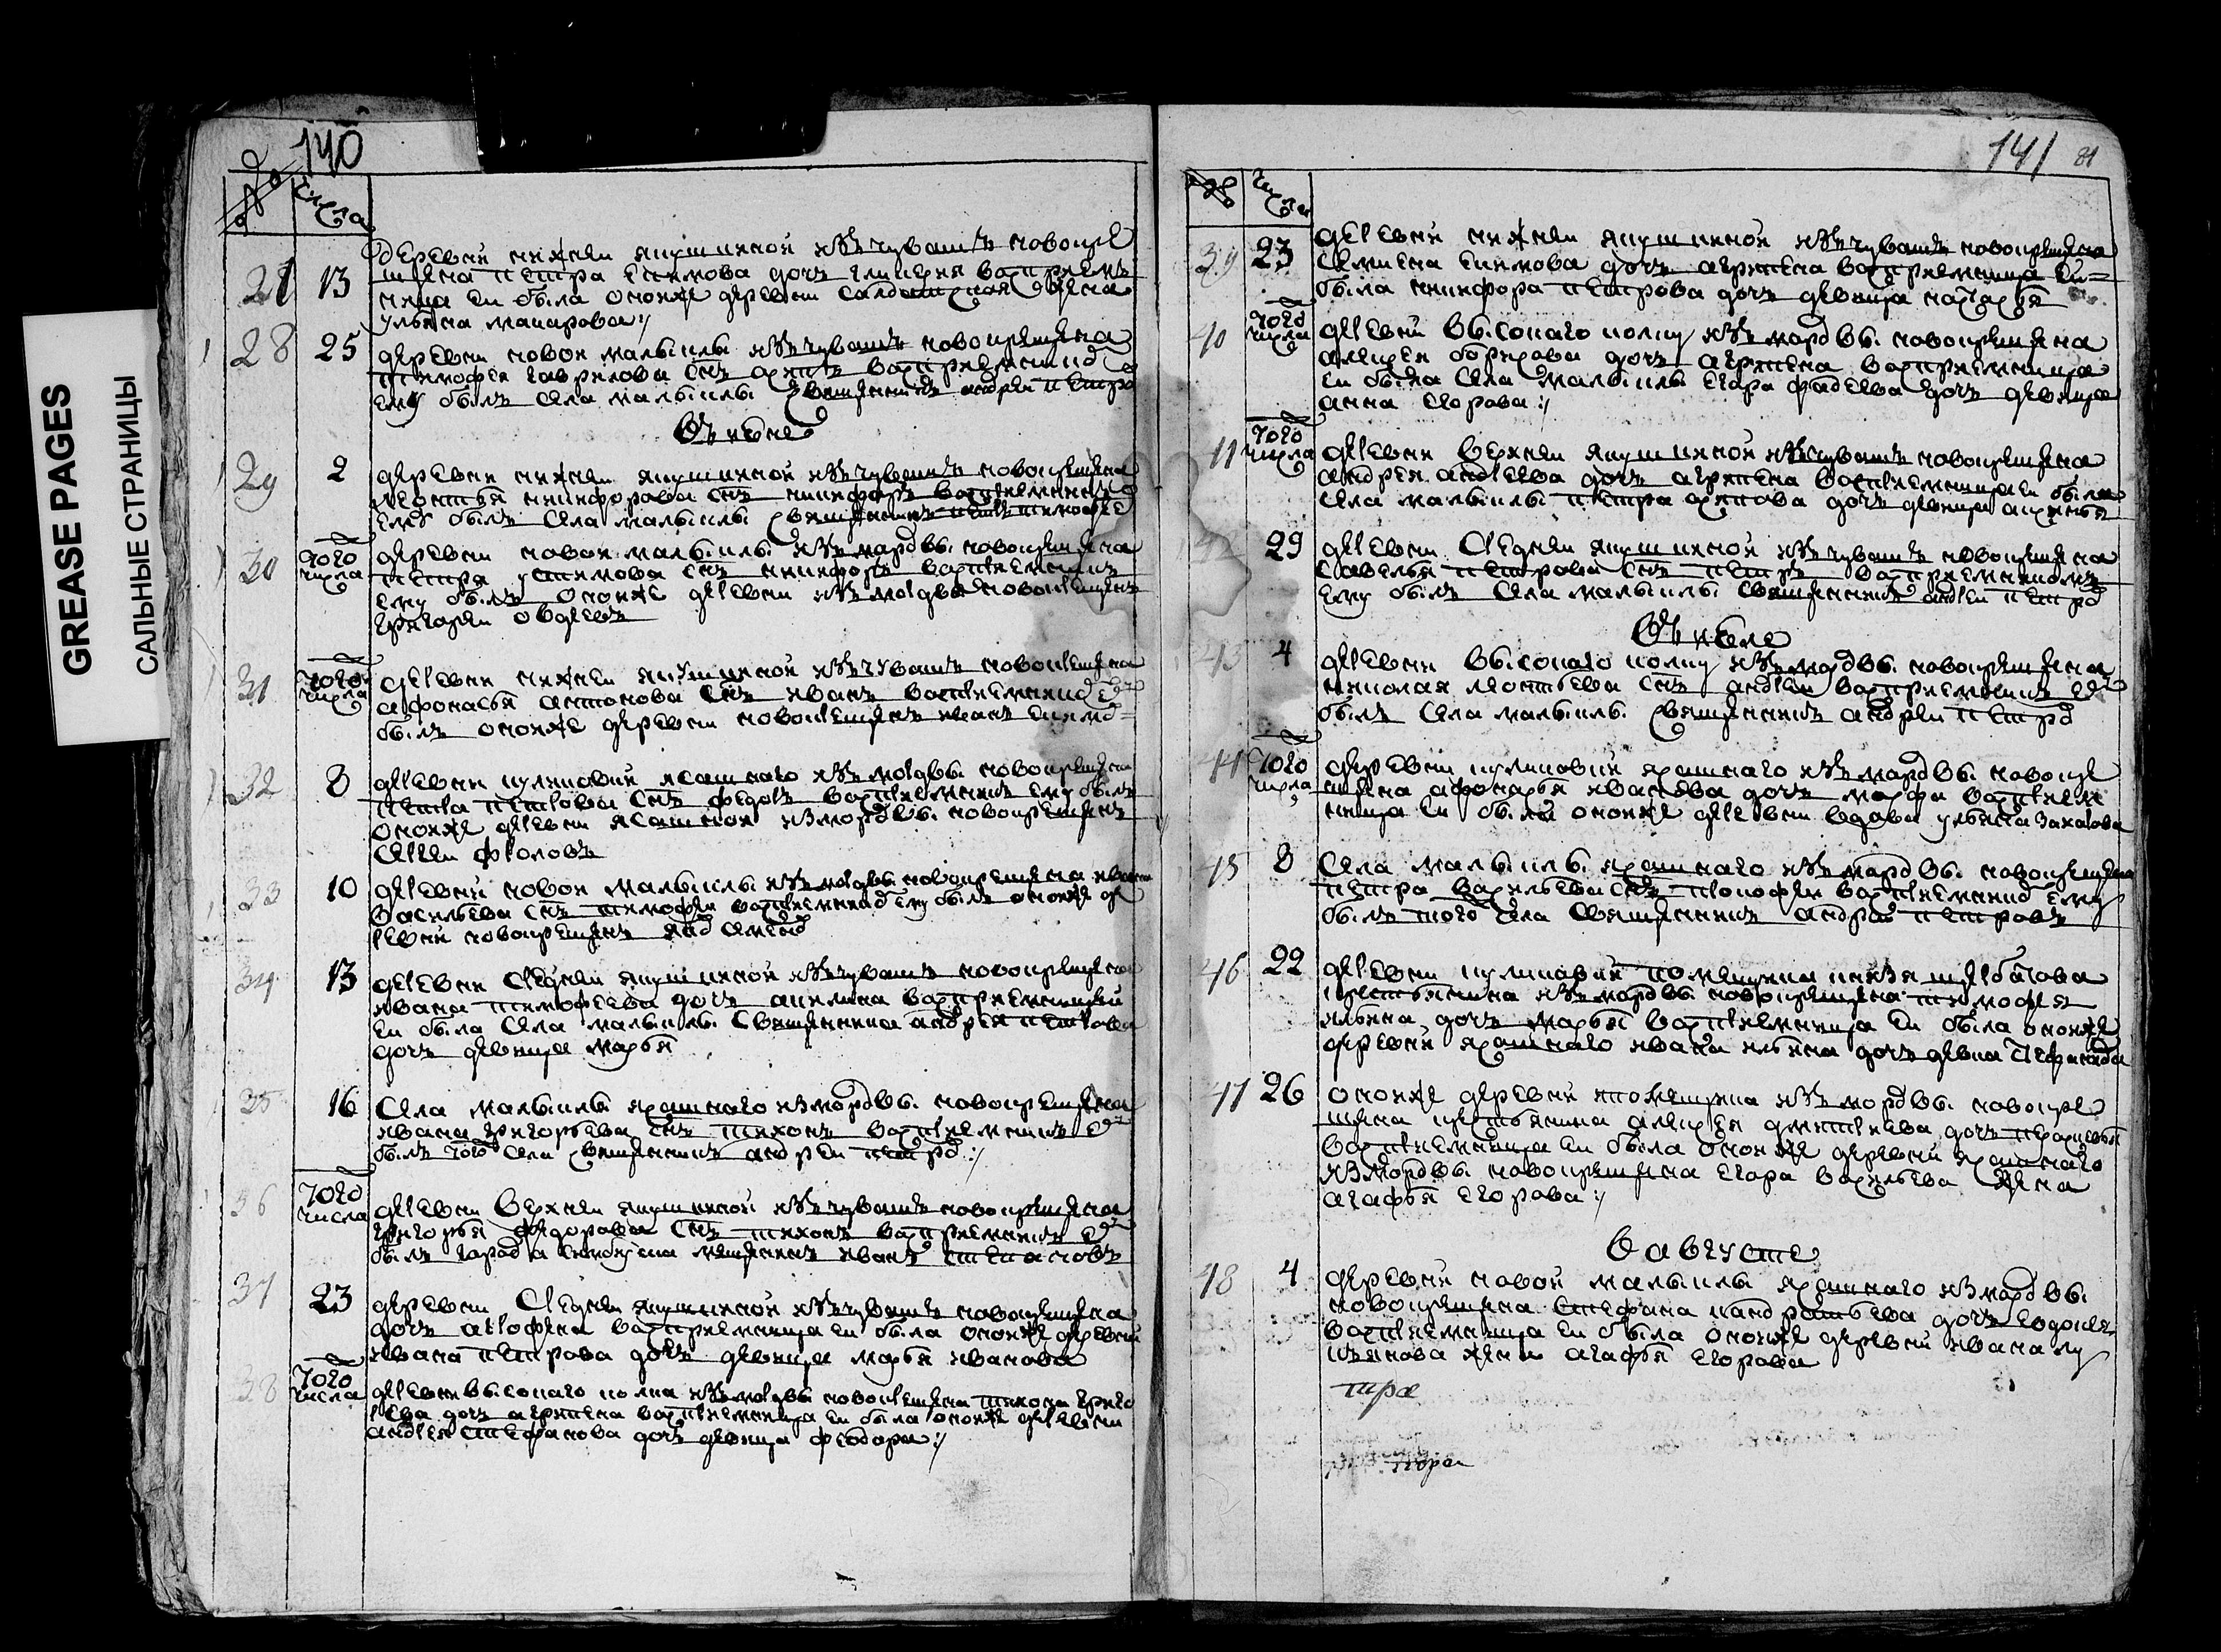 GREASE PAGES
САЛЬНЫЕ СТРАНИЦЫ
140
№ числа
27 13 деревни нижней якушкиной изъ чувашъ новокре
щена петра екимова дочь гликерия восприем
ница ей была оной же деревни салдатская жена
ульяна макарова :/
28 25 деревни новой малыклы изъ чувашъ новокрещена
тимофея гаврилова снъ архипъ восприемнико
ему былъ села малыклы священникъ андрей петро
Въ июне
29 2 деревни нижней якушкиной изъ чувашъ новокрещена
леонтья никифорова снъ никифоръ восприемникъ
ему былъ села малыклы священникъ петръ тимофее
30 того числа деревни новой малыклы изъ мордвы новокрещена
петра устимова снъ никифоръ восприемникъ
ему былъ оной же деревни изъ мордвы новокрещенъ
григорей авдеевъ
31 того числа деревни нижней якушкиной изъ чувашъ новокрещена
афонасья антонова снъ иванъ восприемнико его
былъ оной же деревни новокрещенъ иванъ екимо
32 8 деревни куликовки ясашнаго изъ мордвы новокрещена
петра петрова снъ федоръ восприемникъ ему былъ
оной же деревни ясашной из мордвы новокрещенъ
сергей фроловъ
33 10 деревни новой малыклы изъ мордвы новокрещена ивана
васильева снъ тимофей восприемнико ему былъ оной же де
ревни новокрещенъ
34 13 деревни средней якушкиной изъ чувашъ новокрещена
ивана тимофеева дочь акилина восприемницей
ей была села малыклы священника андрея петрова
дочь девица марья
35 16 села малыклы ясашнаго из мордвы новокрещена
ивана григорьева снъ тихонъ восприемникъ его
былъ того села священникъ андрей петро :/
36 того числа деревни верхней якушкиной изъ чувашъ новокрещена
григорья федорова снъ тихонъ восприемникъ его
былъ города синбирска мещенинъ иванъ степановъ
37 23 деревни средней якушкиной изъ чувашъ новокрещена
дочь агрофена восприемница ей была оной же деревни
ивана петрова дочь девица марья иванова
38 того числа деревни высокаго колка изъ мордвы новокрещена тихона григо
рева дочь агрипена восприемница ей была оной же деревни
андрея степанова дочь девица федора :/
141 81
№ числа
39 23 деревни нижней якушкиной изъ чувашъ новокрещена
семиена екимова дочь агрипена восприемница ей
была никифора петрова дочь девица настасья
40 того числа деревни высокаго колку изъ мордвы новокрещена
алексея борисова дочь агрипена восприемница
ей была села малыклы егора фадеева дочь девица
анна егорова :/
41 того числа деревни верхней якушкиной изъ чувашъ новокрещена
андрея андреева дочь агрипена восприемница ей была
села малыклы петра архипова дочь девица аксинья
42 29 деревни средней якушкиной изъ чувашъ новокрещена
савелья петрова снъ петръ восприемникомъ
ему былъ села малыклы священникъ андрей петро
Въ июле
43 4 деревни высокаго колку изъ мордвы новокрещена
николая леонтьева снъ андрей восприемникъ его
былъ села малыклы священникъ андрей петро
44 того числа деревни куликовки ясашнаго изъ мордвы новокре
щена афонасья иванова дочь марфа восприем
ница ей была оной же деревни вдова ульяна захарова
45 8 села малыклы ясашнаго изъ мордвы новокрещена
петра васильева снъ прокофей восприемнико ему
былъ того села священникъ андрей петровъ
46 22 деревни куликовки помещика князя щербатова
крестьянина изъ мордвы новокрещена тимофея
ильина дочь марья восприемница ей была оной же
деревни ясашнаго ивана ильина дочь девка
47 26 оной же деревни помещика изъ мордвы новокре
щена крестьянина алексея дмитриева дочь парасковья
восприемница ей была оной же деревни ясашнаго
из мордвы новокрещена егора васильева жена
агафья егорова :/
в августе
48 4 деревни новой малыклы ясашнаго из мордвы
новокрещена степана кандратьева дочь евдокея
восприемница ей была оной же деревни ивана лу
кьянова жена агафья егорова